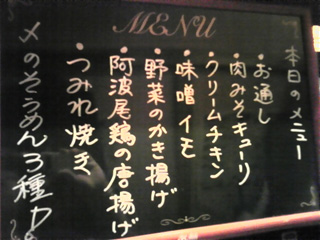 MENU
本日のメニュー
・お通し
・肉みそキューリ
・クリームチキン
・味噌イモ
・野菜のかき揚げ
・阿波尾鶏の唐揚げ
・つみれ焼き
〆のそうめん3種